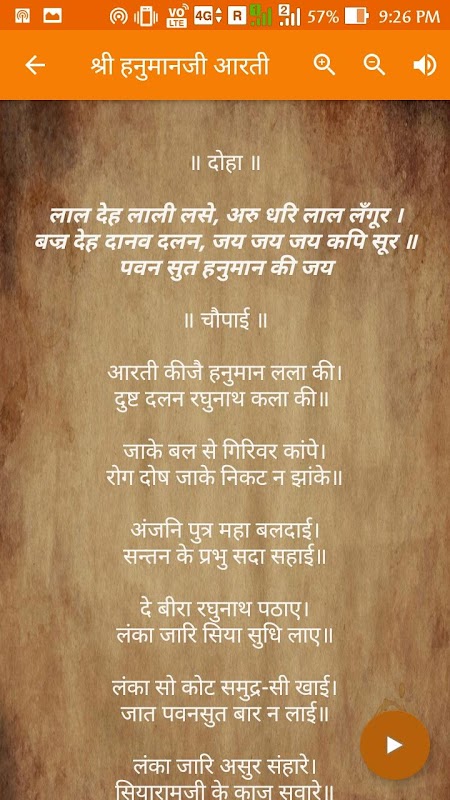 VO LTE 4G R 2 57% 9:26 PM
श्री हनुमानजी आरती
॥ दोहा ॥
लाल देह लाली लसे, अरु धरि लाल लँगूर ।
बज्र देह दानव दलन, जय जय जय कपि सूर ॥
पवन सुत हनुमान की जय
॥ चौपाई ॥
आरती कीजै हनुमान लला की।
दुष्ट दलन रघुनाथ कला की॥
जाके बल से गिरिवर कांपे।
रोग दोष जाके निकट न झांके॥
अंजनि पुत्र महा बलदाई।
सन्तन के प्रभु सदा सहाई॥
दे बीरा रघुनाथ पठाए।
लंका जारि सिया सुधि लाए॥
लंका सो कोट समुद्र-सी खाई।
जात पवनसुत बार न लाई॥
लंका जारि असुर संहारे।
सियारामजी के काज सवारे॥